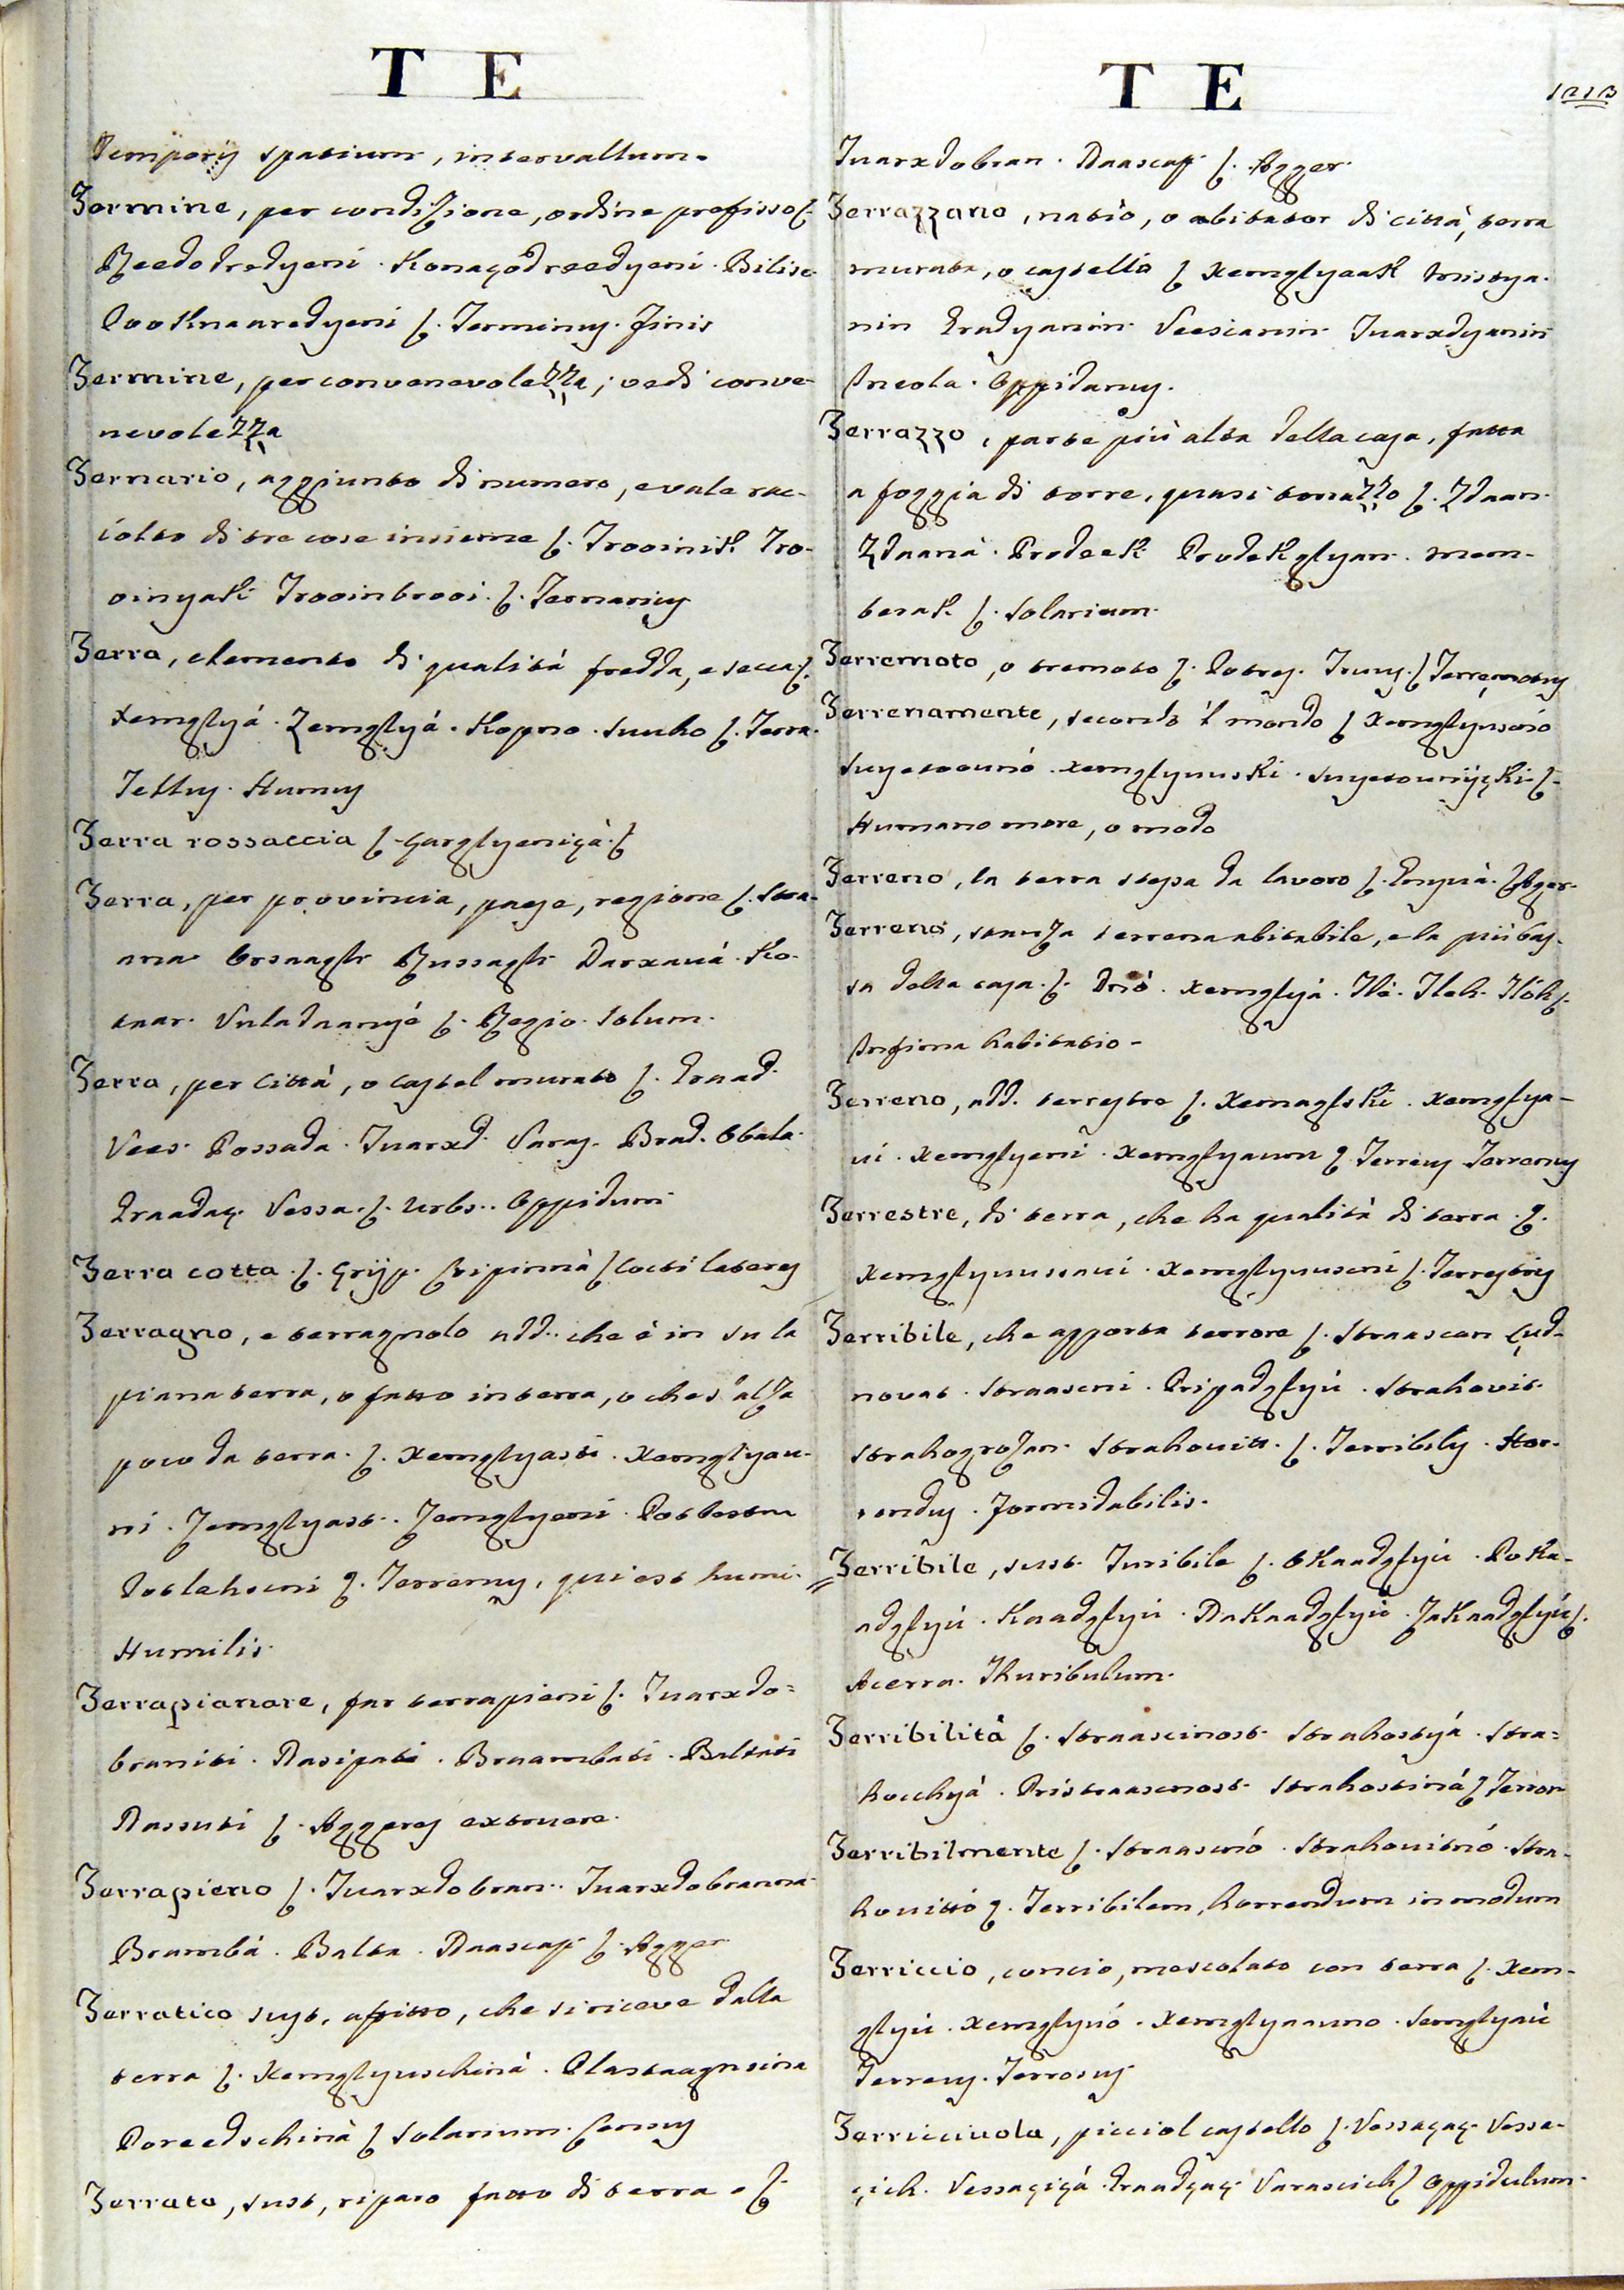 T E
Temporis spatium, intervallum.
Termine, per condizione, ordine prefisso ſ.
Reedo dredyeni. Konaçodreedyeni. Bilise.
Pooknaaredyeni ſ. Terminus. Finis
Termine, per convenevolezza; vedi conve-
nevolezza
Ternario, aggiunto di numero, e vale rac-
colto di tre cose insieme ſ. Trooinik. Tro-
oinyaki Trooinbrooi. ſ. Ternarius
Terra, elemento di qualità fredda, e secca ſ.
xemglyá. Zemglyá. Kopno. Suuho ſ. Terra.
Tellus. Humus
Terra rossaccia ſ. Çarglyeniçá. ſ
Terra, per provincia, paese, regione ſ. Stra-
ana Orsaagh Russagh Darxavá. Ko-
taar. Vuladaanyé ſ. Regio. Solum.
Terra, per Città, o Castel murato ſ. Graad.
Vees. Possada. Tvarxd. Varas. Brad. Obala.
Graadaç. Vessa. ſ. Urbs. Oppidum
Terra cotta. ſ. Çrijp. Cripinná ſ Cocti lateres
Terragno, e terragnolo add. che è in su la
piana terra, o fatto in terra, o che s'alza
poco da terra. ſ. Xemglyasti. Xemglyau-
ni. Zemglyast. Zemglyeni. Potlestna
Potlehscni ſ. Terrenus, qui est humi.
Humilis.
Terrapianare, far terrapieni ſ. Tvarxdo-
braniti. Nasipati. Braambati. Baltati
Nassuti ſ. Aggeres extruere.
Terrapieno ſ. Tvarxdobran. Tvarxdobranna
Brambá. Balta. Naascap ſ. Agger
Terratico sust. afitto, che si riceve dalla
terra ſ. Xemglyuschiná. Plastaagnsina
Poreedschiná ſ Solarium. Census
Terrato, sust, riparo fatto di terra. ſ.
T E
1213
Tvarxdobran. Naascap ſ. Agger.
Terrazzano, natio, o abitator di città, terra
murata, o castello ſ Xemglyaak Mistya-
nin Gradyanin Veescianin Tvarxdyanin
Incola. Oppidanus.
Terrazzo, parte più alta della casa, fatta
a foggia di torre, quasi torrazzo ſ. Zdaan.
Zdaaná. Prodeek Prodekglyan. mem-
berak ſ. Solarium.
Terremoto, o tremoto ſ. Potres. Truus. ſ Terremotus
Terrenamente, secondo 'l mondo ſ Xemglyuscnó
Suyetounó. xemglyuuski. Suyetounijçki ſ.
Humano more, o modo
Terreno, la terra stessa da lavoro ſ. Gnyvá. ſ Ager.
Terreno, stanza terrena abitabile, e la più bas-
sa della casa. ſ. Dnó. xemglyá. Tlé. Tleh. Tlóh ſ.
Infima habitatio.
Terreno, add. terrestre ſ. Xemaglski. Xemglya-
vi. Xemglyeni. Xemglyaunn ſ. Terreus Terrenus
Terrestre, di terra, che ha qualità di terra. ſ.
Xemglyuusavi. Xemglyuuscni ſ. Terrestris
Terribile, che apporta terrore ſ. Straascan Çud-
novat. Straascni. Pripadglyiv. Strahovit.
Strahogrozan. Strahovitt. ſ. Terribilis. Hor-
rendus. Formidabilis.
Terribile, sust. Turibile ſ. Okaadglyiv. Poka-
adglyiv. Kaadglyiv. Nakaadglyiv. Zakaadglyiv ſ.
Acerra. Thuribulum.
Terribilità ſ. Straascinost. Strahostyá. Stra-
hocchyá. Pristraascnost. Strahostiná ſ Terror
Terribilmente ſ. Straascnó. Strahovitnó. Stra-
hovittó ſ. Terribilem, horrendum in modum
Terriccio, concio, mescolato con terra ſ. Xem-
glyiv. Xemglynó. Xemglyaunno. Semglyaiv
Terreus. Terrosus
Terricciuola, picciol castello ſ. Vessaçaç. Vessa-
çich. Vessaçiçá. Graadçaç. Varascich ſ Oppidulum.